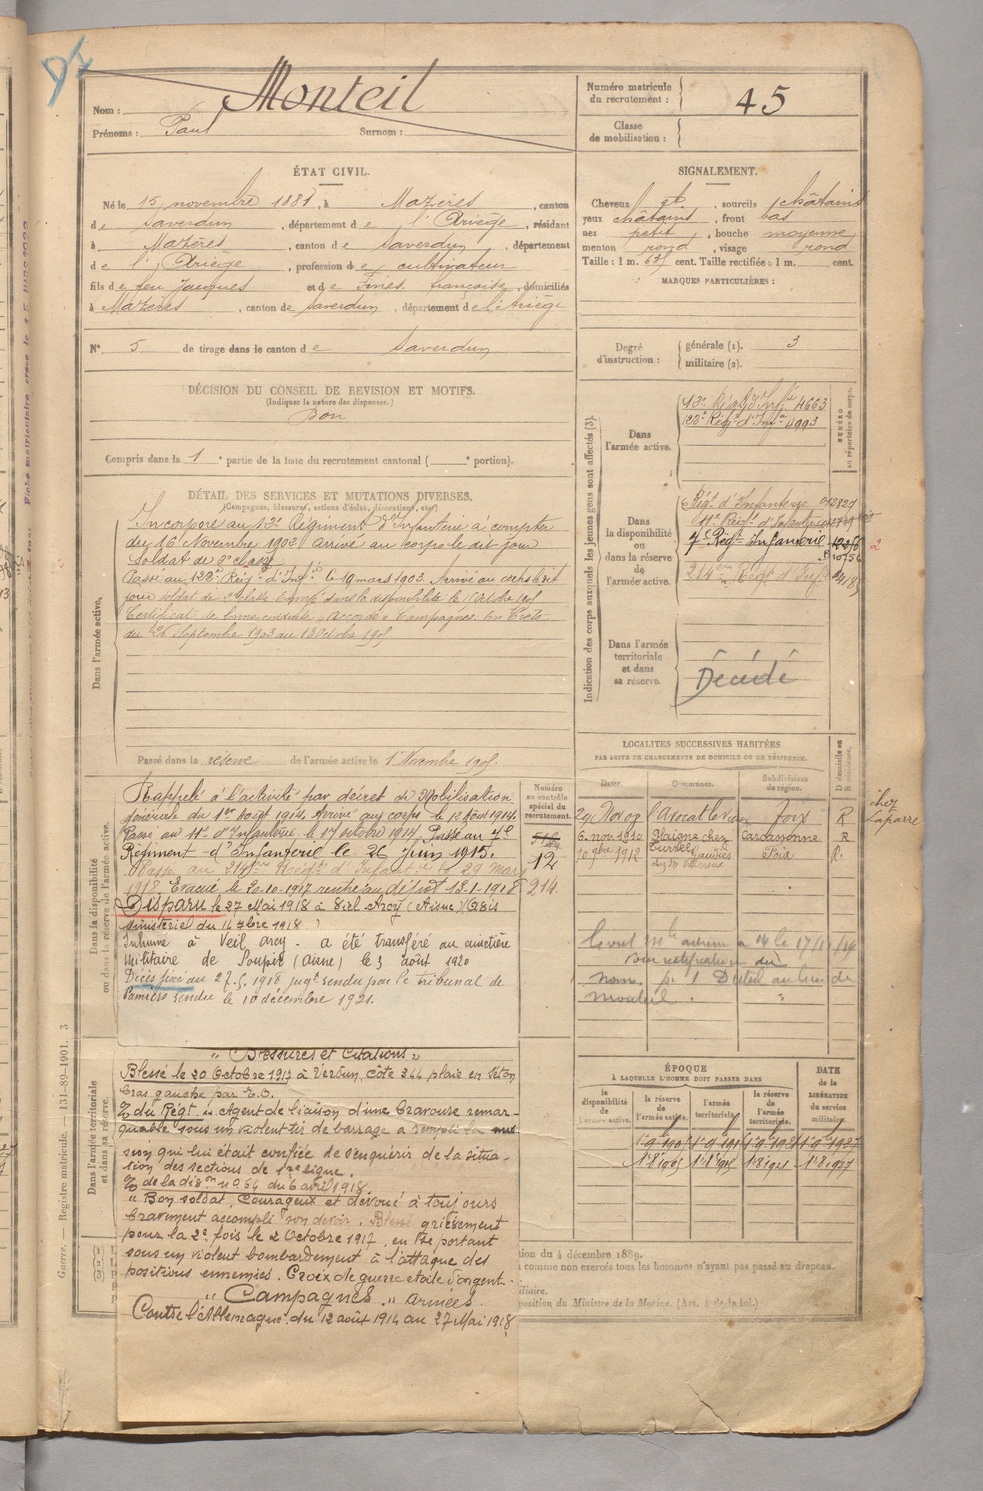 Monteil
Nom :
Prénoms : Paul Surnom :
Numéro matricule du recrutement : 45
Classe de mobilisation :
ÉTAT CIVIL.
Né le 15 novembre 1881, à Mazères, canton
de Saverdun, département de l'Ariège, résidant
à Mazères, canton de Saverdun, département
de l'Ariège, profession de cultivateur
fils de feu Jacques et de Fines françoise, domiciliés
à Mazères, canton de Saverdun, département de l'Ariège
N° 5 de tirage dans le canton de Saverdun
DÉCISION DU CONSEIL DE REVISION ET MOTIFS.
(Indiquer la nature des dispenses.)
Bon
Compris dans la 1e partie de la liste du recrutement cantonal ( e portion).
DÉTAIL DES SERVICES ET MUTATIONS DIVERSES.
(Campagnes, blessures, actions d'éclat, décorations, etc.)
Dans l'armée active.
Incorporé au 12e Régiment d'Infanterie à compter
du 16 Novembre 1902 Arrivé au corps le dit jour
Soldat de 2e classe
Passé au 122e Régt d'Infie le 19 mars 1903. Arrivé au corps le dit
jour soldat de 2e classe Envoyé dans la disponibilité le 1 Octobre 1905
Certificat de bonne conduite "accordé" Campagnes. En Crète
du 26 Septembre 1903 au 1 Octobre 1905
Passé dans la réserve de l'armée active le 1er Novembre 1905.
Dans la disponibilité ou dans la réserve de l'armée active.
Rappelé à l'activité par décret de Mobilisation
générale du 1er Août 1914. Arrivé au corps le 12 Août 1914.
Passé au 11e d'Infanterie le 17 octobre 1914. Passé au 7e
Régiment d'Infanterie le 26 Juin 1915.
Passé au 214e Régt d'Infanterie le 29 mars
1918 Evacué le 20.10.1917 rentré au dépôt 13-1-1918
Disparu le 27 Mai 1918 à Viel-Arcy (Aisne) (Avis
ministériel du 14 7bre 1918)
Inhumé à Veil arcy. a été transféré au cimetière
militaire de Soupir (Aisne) le 3 août 1920
Décès fixé au 27.5.1918 jugt rendu par le tribunal de
Pamiers rendu le 10 décembre 1921.
Numéro au contrôle spécial du recrutement.
12
214.
Dans l'armée territoriale et dans sa réserve.
"Blessures et Citations"
Blessé le 20 Octobre 1917 à Verdun, côte 344 plaie en Séton
bras gauche par E.O.
O du Régt "Agent de liaison d'une bravoure remar-
quable sous un violent tir de barrage a rempli la mis
sion qui lui était confiée de s'enquérir de la situa-
tion des sections de 1ère ligne.
O de la dion n° 64 du 6 avril 1918.
"Bon soldat, Courageux et dévoué à toujours
bravement accompli son devoir. Blessé grièvement
pour la 2e fois le 2 Octobre 1917, en se portant
sous un violent bombardement à l'attaque des
positions ennemies. Croix de guerre étoile d'argent.
"Campagnes" armées.
Contre l'Allemagne: du 12 août 1914 au 27 Mai 1918
SIGNALEMENT.
Cheveux et, sourcils châtains
yeux châtains, front bas
nez petit, bouche moyenne
menton rond, visage rond
Taille : 1 m. 63 cent. Taille rectifiée : 1 m. cent.
MARQUES PARTICULIÈRES :
Degré d'instruction :
générale (1). 3
militaire (2).
Indication des corps auxquels les jeunes gens sont affectés (3).
NUMÉRO au répertoire du corps.
Dans l'armée active.
12e Régt d'Infie 4663
122e Régt d'Infie 4993
Dans la disponibilité ou dans la réserve de l'armée active.
Régt d'Infanterie
11e Régt d'Infanterie
7e Régt Infanterie
214me Régt d'Infie
2
Dans l'armée territoriale et dans sa réserve.
Décédé
LOCALITÉS SUCCESSIVES HABITÉES
PAR SUITE DE CHANGEMENTS DE DOMICILE OU DE RÉSIDENCE.
Dates. Communes. Subdivisions de région. D domicile ou R résidence.
Foix R
6 nov. 1910 Plaigne chez Carcassonne R
10 9bre 1912 Gaudiès Foix R.
chez Laparre
ÉPOQUE
À LAQUELLE L'HOMME DOIT PASSER DANS
la disponibilité de l'armée active.
la réserve de l'armée active.
l'armée territoriale.
la réserve de l'armée territoriale.
DATE de la LIBÉRATION du service militaire.
Guerre. — Registre matricule. — 131-89-1901. 3
tion du 4 décembre 1889.
comme non exercés tous les hommes n'ayant pas passé au drapeau.
position du Ministre de la Marine. (Art. 4 de la loi.)